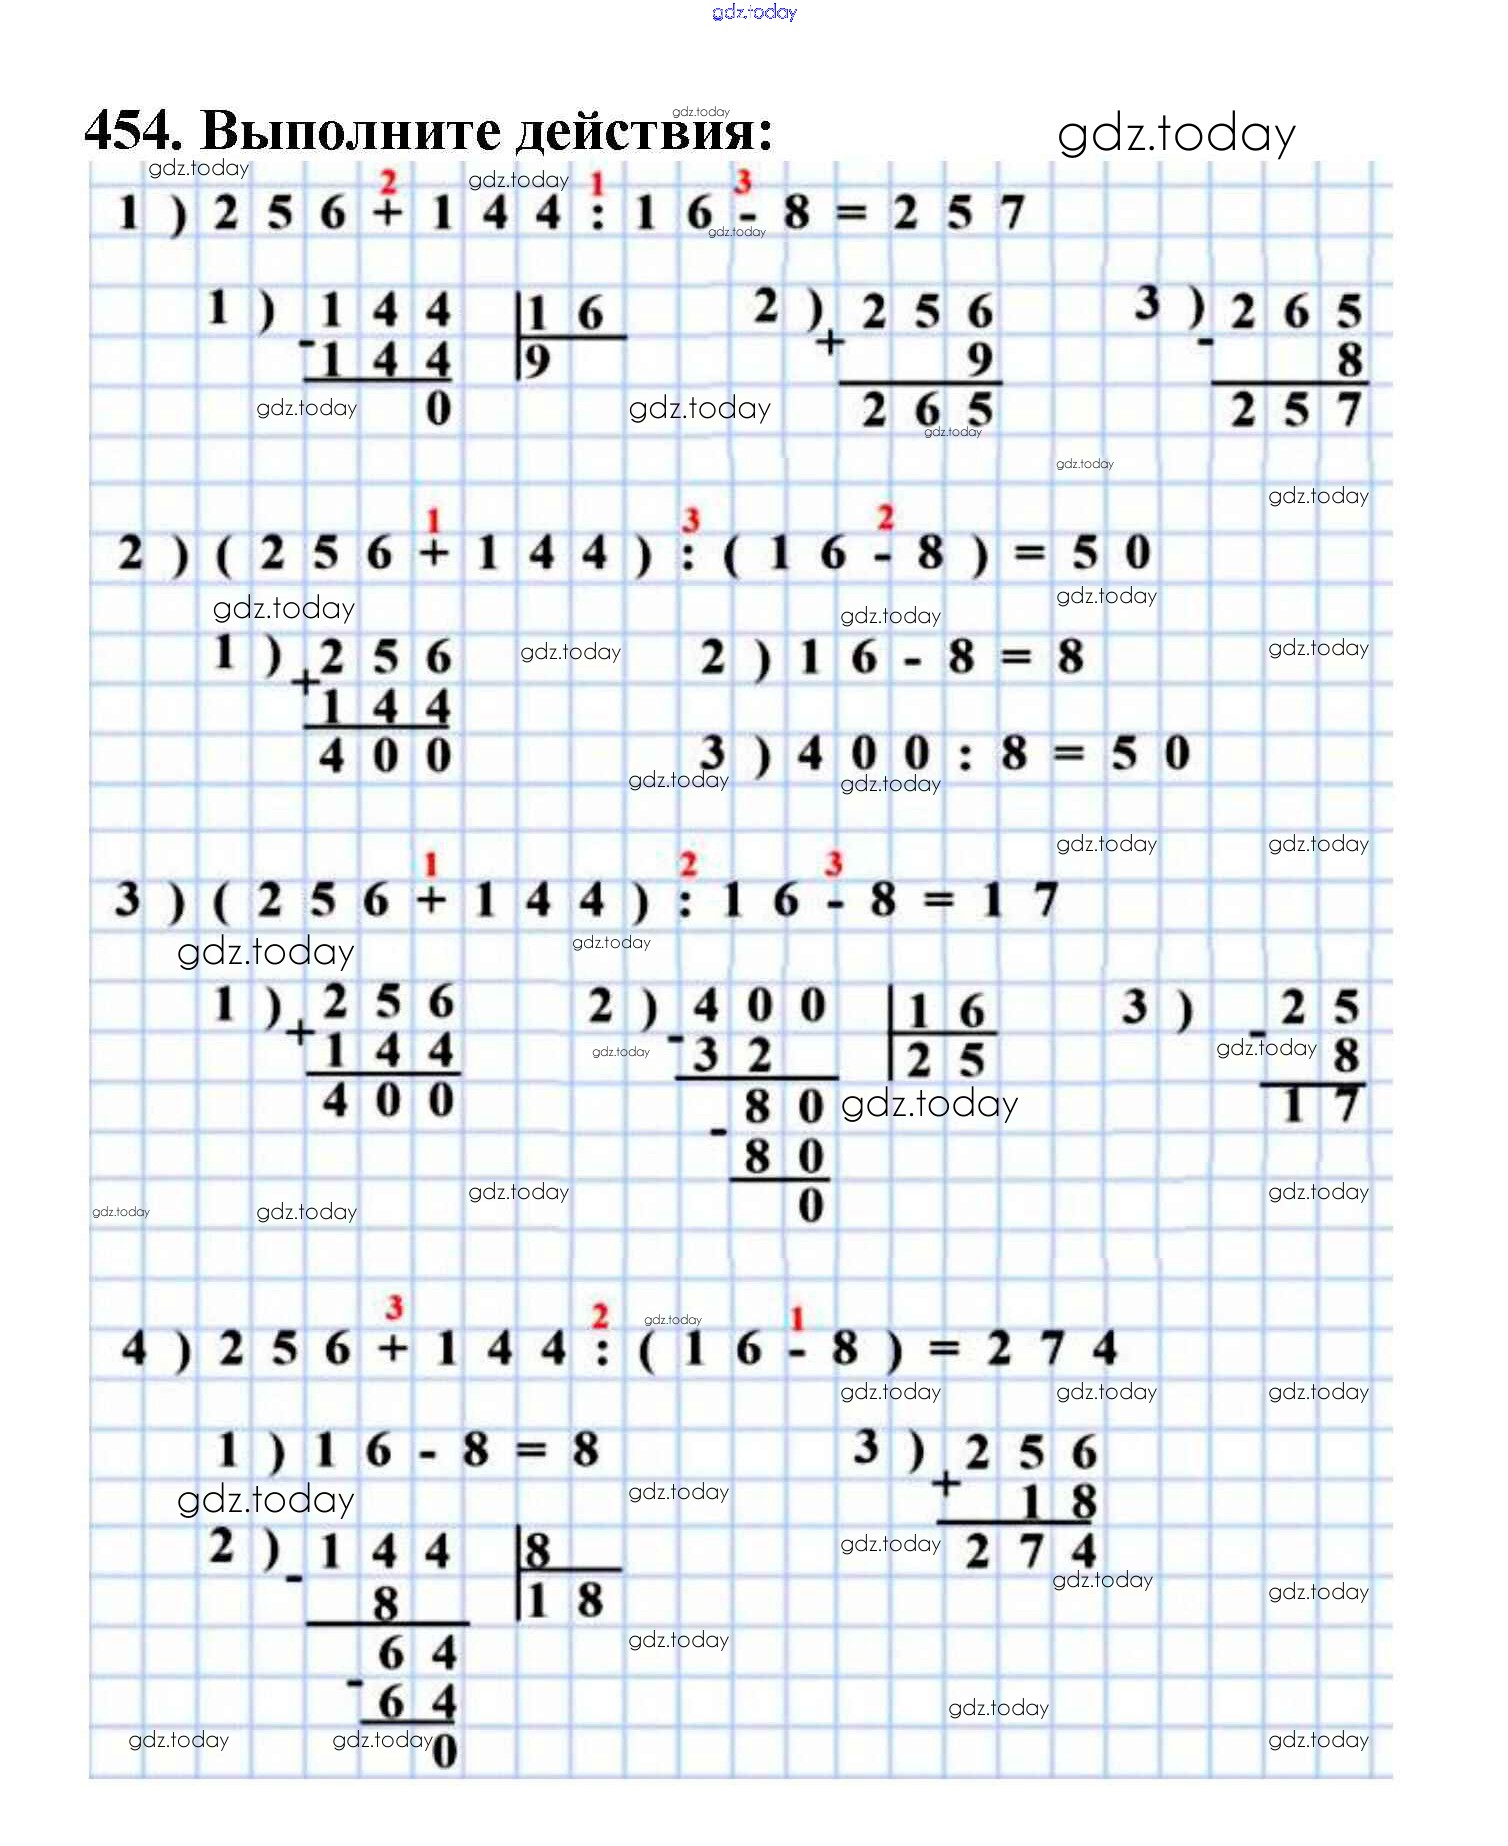 gdz.today
454. Выполните действия:
gdz.today
gdz.today
gdz.today gdz.today
2 1 3
1) 256 + 144 : 16 - 8 = 257
gdz.today
1) 144 |16 2) 256 3) 265
- 144 |9 + 9 - 8
0 265 257
gdz.today gdz.today gdz.today
gdz.today
gdz.today
1 3 2
2) (256 + 144) : (16 - 8) = 50
gdz.today gdz.today gdz.today
1) 256 2) 16 - 8 = 8
gdz.today gdz.today
+ 144
400 3) 400 : 8 = 50
gdz.today gdz.today
gdz.today gdz.today
1 2 3
3) (256 + 144) : 16 - 8 = 17
gdz.today gdz.today
1) 256 2) 400 |16 3) 25
+ 144 - 32 |25 - 8
gdz.today gdz.today
400 80 17
gdz.today
- 80
0
gdz.today gdz.today gdz.today gdz.today
3 2 1
gdz.today
4) 256 + 144 : (16 - 8) = 274
gdz.today gdz.today gdz.today
1) 16 - 8 = 8 3) 256
gdz.today gdz.today
+ 18
2) 144 |8 274
gdz.today gdz.today gdz.today
- 8 |18
64
gdz.today
- 64
gdz.today
0
gdz.today gdz.today gdz.today